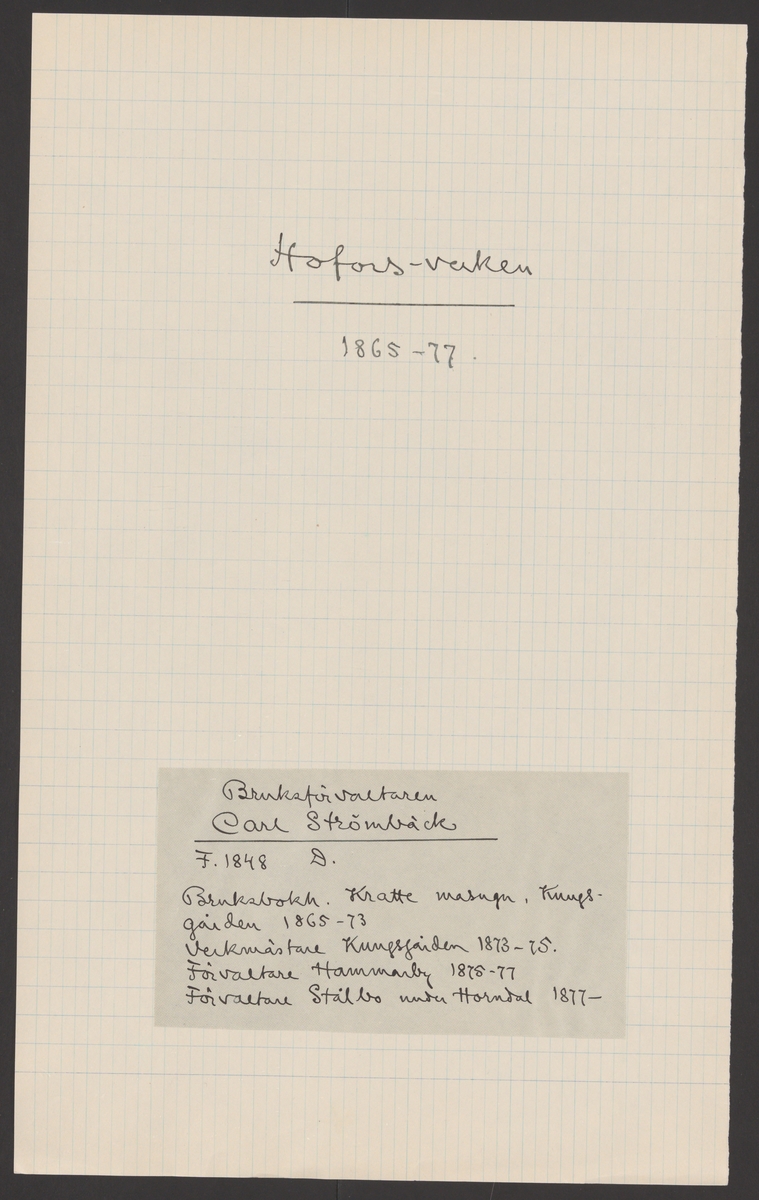 Hofors-verken
1865-77.
Bruksförvaltaren
Carl Strömbäck
F. 1848 D.
Bruksbokh. Kratte masugn, Kungs-
gården 1865-73
Verkmästare Kungsgården 1873-75.
Förvaltare Hammarby 1875-77
Förvaltare Stålbo under Horndal 1877-